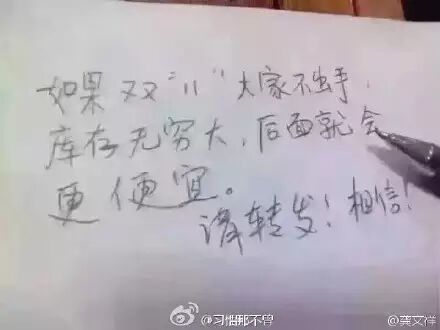 如果双"11"大家不出手，
库存无穷大，后面就会
更便宜。
请转发！相信！
@习惯那不曾
@龚文祥